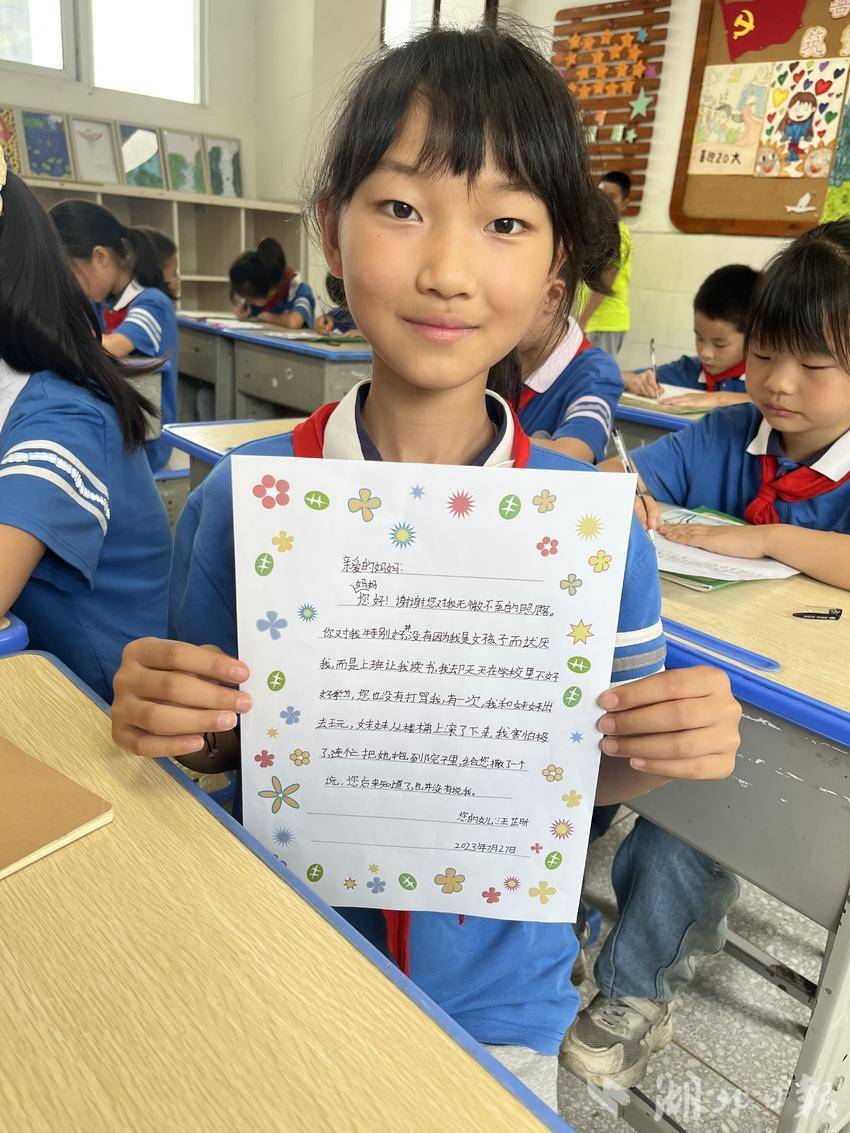 喜迎20大
亲爱的妈妈：
妈妈
您好！谢谢您对我无微不至的照顾。
你对我特别好，没有因为我是女孩子而讨厌
我，而是上班让我读书，我却天天在学校里不好
好学习，您也没有打骂我，有一次，我和妹妹出
去玩，妹妹从楼梯上滚了下来，我害怕极
了，连忙把她抱到院子里，给您撒了一个
谎，您后来知道了，也并没有说我。
您的女儿：汪芷
2023年9月27日
湖北日报